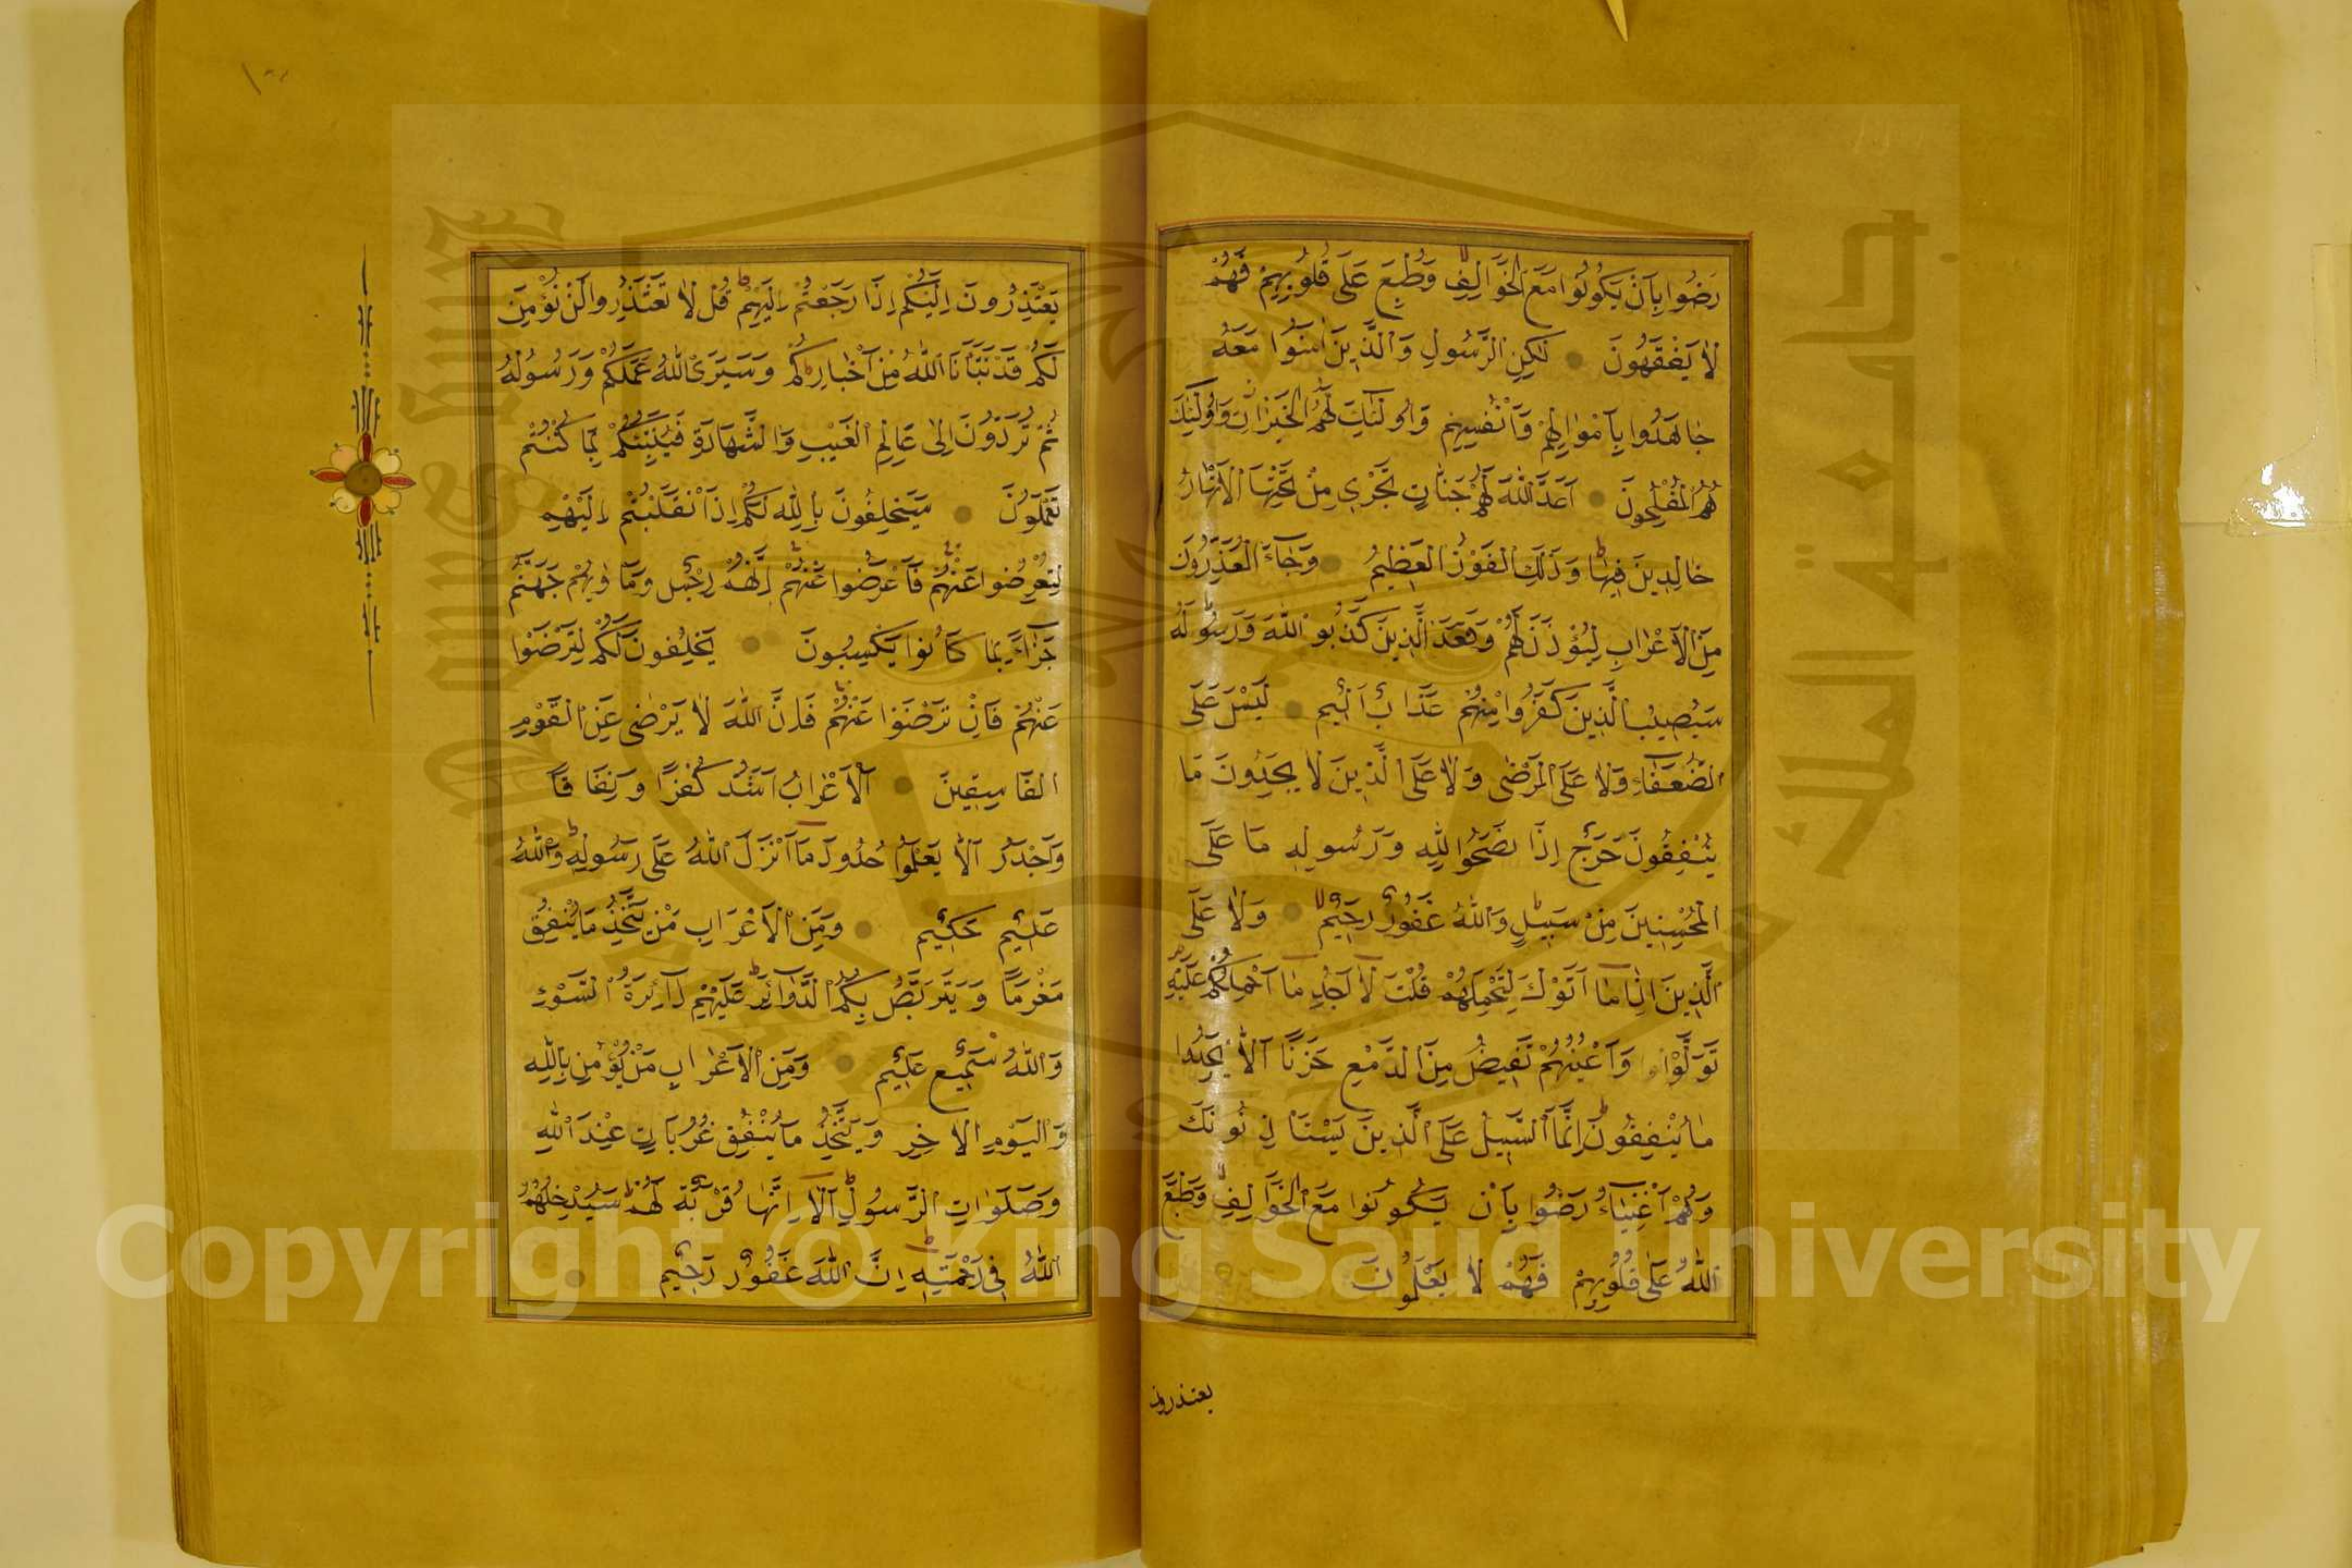 رَضُوا بِاَنْ يَكُونُوا مَعَ الْخَوَالِفِ وَطُبِعَ عَلَى قُلُوبِهِمْ فَهُمْ
لَا يَفْقَهُونَ لٰكِنِ الرَّسُولِ وَالَّذِينَ اٰمَنُوا مَعَهُ
جَاهَدُوا بِاَمْوَالِهِمْ وَاَنْفُسِهِمْ وَاُولٰئِكَ لَهُمُ الْخَيْرَاتُ وَاُولٰئِكَ
هُمُ الْمُفْلِحُونَ اَعَدَّ اللّٰهُ لَهُمْ جَنَّاتٍ تَجْرِي مِنْ تَحْتِهَا الْاَنْهَارُ
خَالِدِينَ فِيهَا وَذَلِكَ الْفَوْزُ الْعَظِيمُ وَجَاءَ الْمُعَذِّرُونَ
مِنَ الْاَعْرَابِ لِيُؤْذَنَ لَهُمْ وَقَعَدَ الَّذِينَ كَذَبُوا اللّٰهَ وَرَسُولَهُ
سَيُصِيبُ الَّذِينَ كَفَرُوا مِنْهُمْ عَذَابٌ اَلِيمٌ لَيْسَ عَلَى
الضُّعَفَاءِ وَلَا عَلَى الْمَرْضٰى وَلَا عَلَى الَّذِينَ لَا يَجِدُونَ مَا
يُنْفِقُونَ حَرَجٌ اِذَا نَصَحُوا لِلّٰهِ وَرَسُولِهِ مَا عَلَى
الْمُحْسِنِينَ مِنْ سَبِيلٍ وَاللّٰهُ غَفُورٌ رَحِيمٌ وَلَا عَلَى
الَّذِينَ اِذَا مَا اَتَوْكَ لِتَحْمِلَهُمْ قُلْتَ لَا اَجِدُ مَا اَحْمِلُكُمْ عَلَيْهِ
تَوَلَّوْا وَاَعْيُنُهُمْ تَفِيضُ مِنَ الدَّمْعِ حَزَنًا اَلَّا يَجِدُوا
مَا يُنْفِقُونَ اِنَّمَا السَّبِيلُ عَلَى الَّذِينَ يَسْتَاْذِنُونَكَ
وَهُمْ اَغْنِيَاءُ رَضُوا بِاَنْ يَكُونُوا مَعَ الْخَوَالِفِ وَطَبَعَ
اللّٰهُ عَلَى قُلُوبِهِمْ فَهُمْ لَا يَعْلَمُونَ
يعتذرون
يَعْتَذِرُونَ اِلَيْكُمْ اِذَا رَجَعْتُمْ اِلَيْهِمْ قُلْ لَا تَعْتَذِرُوا لَنْ نُؤْمِنَ
لَكُمْ قَدْ نَبَّاَنَا اللّٰهُ مِنْ اَخْبَارِكُمْ وَسَيَرَى اللّٰهُ عَمَلَكُمْ وَرَسُولُهُ
ثُمَّ تُرَدُّونَ اِلٰى عَالِمِ الْغَيْبِ وَالشَّهَادَةِ فَيُنَبِّئُكُمْ بِمَا كُنْتُمْ
تَعْمَلُونَ سَيَحْلِفُونَ بِاللّٰهِ لَكُمْ اِذَا انْقَلَبْتُمْ اِلَيْهِمْ
لِتُعْرِضُوا عَنْهُمْ فَاَعْرِضُوا عَنْهُمْ اِنَّهُمْ رِجْسٌ وَمَاْوٰيهُمْ جَهَنَّمُ
جَزَاءً بِمَا كَانُوا يَكْسِبُونَ يَحْلِفُونَ لَكُمْ لِتَرْضَوْا
عَنْهُمْ فَاِنْ تَرْضَوْا عَنْهُمْ فَاِنَّ اللّٰهَ لَا يَرْضٰى عَنِ الْقَوْمِ
الْفَاسِقِينَ اَلْاَعْرَابُ اَشَدُّ كُفْرًا وَنِفَاقًا
وَاَجْدَرُ اَلَّا يَعْلَمُوا حُدُودَ مَا اَنْزَلَ اللّٰهُ عَلَى رَسُولِهِ وَاللّٰهُ
عَلِيمٌ حَكِيمٌ وَمِنَ الْاَعْرَابِ مَنْ يَتَّخِذُ مَا يُنْفِقُ
مَغْرَمًا وَيَتَرَبَّصُ بِكُمُ الدَّوَائِرَ عَلَيْهِمْ دَائِرَةُ السَّوْءِ
وَاللّٰهُ سَمِيعٌ عَلِيمٌ وَمِنَ الْاَعْرَابِ مَنْ يُؤْمِنُ بِاللّٰهِ
وَالْيَوْمِ الْاٰخِرِ وَيَتَّخِذُ مَا يُنْفِقُ قُرُبَاتٍ عِنْدَ اللّٰهِ
وَصَلَوَاتِ الرَّسُولِ اَلَا اِنَّهَا قُرْبَةٌ لَهُمْ سَيُدْخِلُهُمُ
اللّٰهُ فِي رَحْمَتِهِ اِنَّ اللّٰهَ غَفُورٌ رَحِيمٌ
Copyright © King Saud University
جامعة الملك